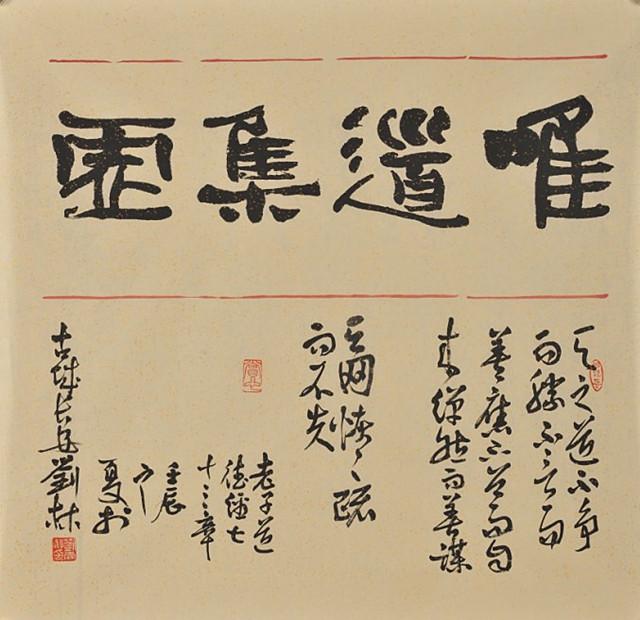 唯道集虚
天之道不争
而勝不言而
善應不召而自
来繟然而善謀
天網恢々疏
而不失
老子道
德經七
十三章
壬辰
之
夏於
古城長安劉林